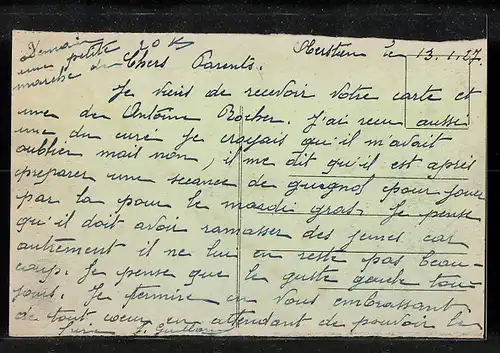 Demain
une petite 20 K
marche de
Oerstein le 13.1.27.
Chers Parents.
Je viens de recevoir votre carte et
une de Antoine Rocher. J'ai recu aussi
une du curé je croyais qu'il m'avait
oublier mais non, il me dit qu'il est après
preparer une seance de guignol pour jouer
par la pour le mardi gras. Je pense
qu'il doit avoir ramasser des jeunes car
autrement il ne lui en reste pas beau-
coup. Je pense que le guste gueule tou-
jours. Je termine en vous embrassant
de tout coeur en attendant de pouvoir le
faire